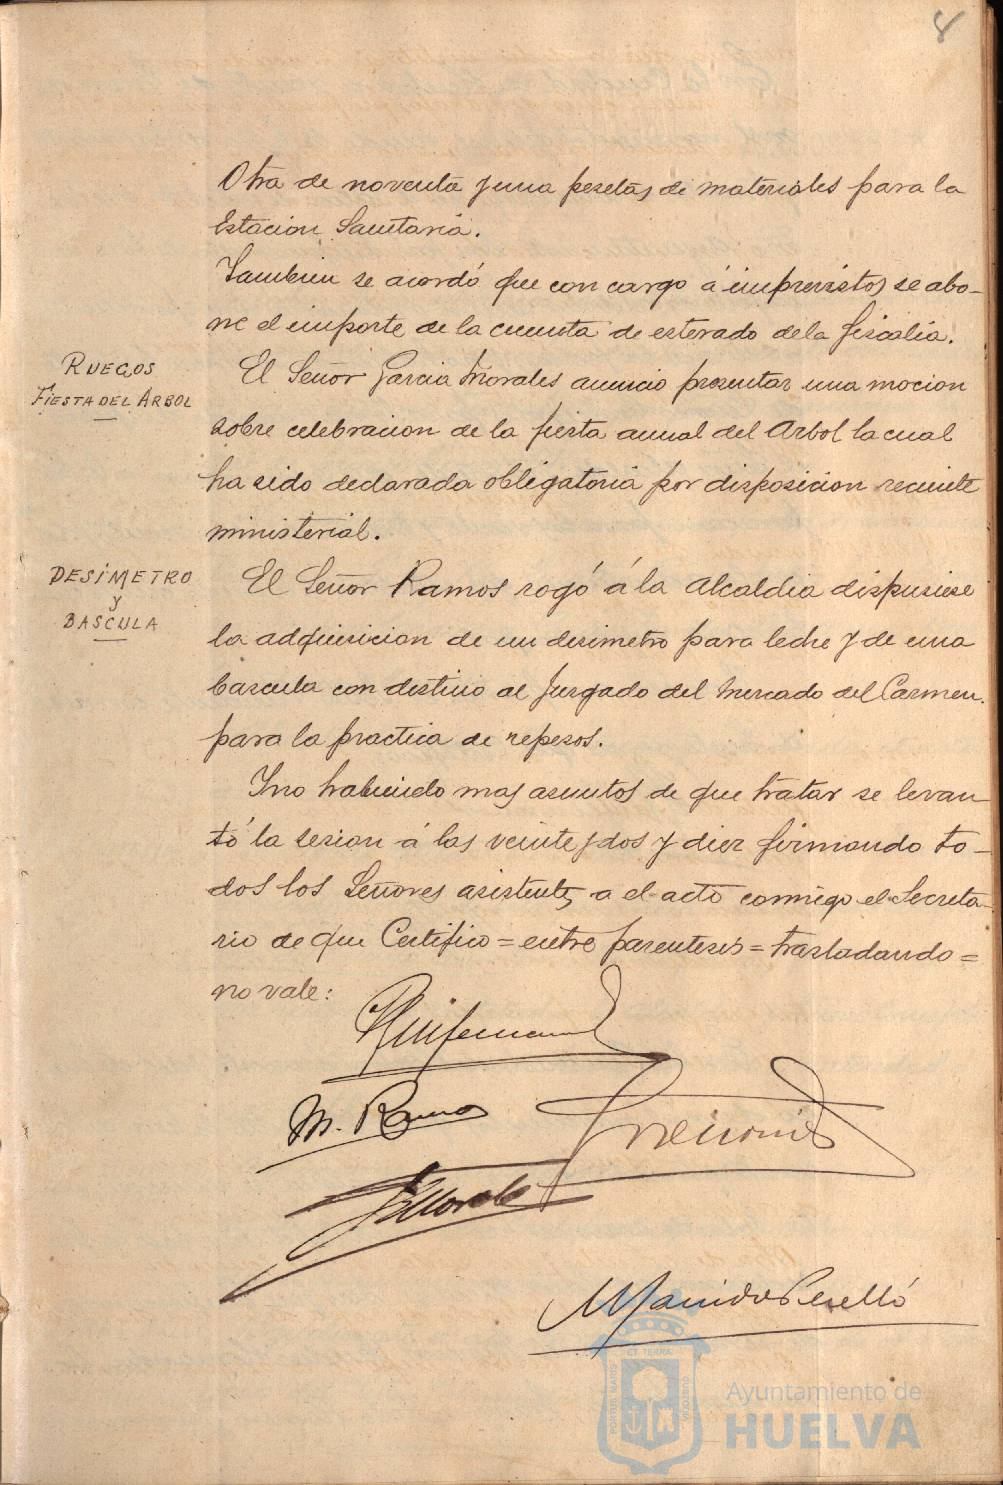 8
Otra de noventa y una pesetas, de materiales para la
Estacion Sanitaria.
Tambien se acordó que con cargo á imprevistos se abo-
ne el importe de la cuenta de esterado de la fiscalia.
RUEGOS
FIESTA DEL ARBOL
El Señor Garcia Morales anuncio presentar una mocion
sobre celebracion de la fiesta anual del Arbol la cual
ha sido declarada obligatoria por disposicion reciente
ministerial.
DESIMETRO
y
BASCULA
El Señor Ramos rogó á la Alcaldia dispusiese
la adquisicion de un desimetro para leche y de una
bascula con destino al Juzgado del Mercado del Carmen.
para la practica de repesos.
Y no habiendo mas asuntos de que tratar se levan
tó la sesion á las veinte y dos y diez firmando to-
dos los Señores asistentes a el acto conmigo el Secreta-
rio de que Certifico = entre parentesis = trasladando =
no vale:
M. Ramos
PORTUS MARIS
ET TERRA
CUSTODIA
Ayuntamiento de
HUELVA